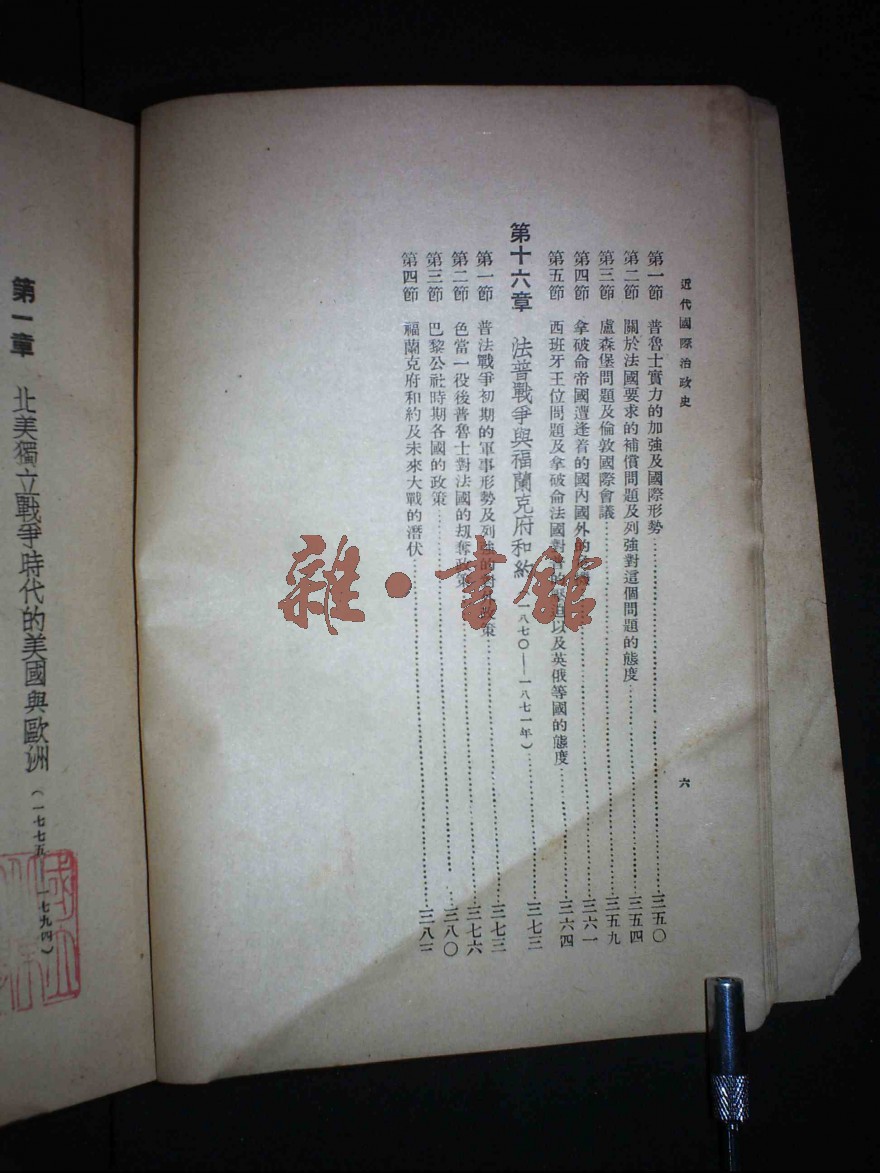 近代國際治政史
六
第一節 普魯士實力的加強及國際形勢……三五〇
第二節 關於法國要求的補償問題及列強對這個問題的態度……三五四
第三節 盧森堡問題及倫敦國際會議……三五九
第四節 拿破侖帝國遭逢着的國內國外的……三六一
第五節 西班牙王位問題及拿破侖法國對普的以及英俄等國的態度……三六四
第十六章 法普戰爭與福蘭克府和約(一八七〇——一八七一年)……三七三
第一節 普法戰爭初期的軍事形勢及列強的對外政策……三七三
第二節 色當一役後普魯士對法國的刼奪政策……三七六
第三節 巴黎公社時期各國的政策……三八〇
第四節 福蘭克府和約及未來大戰的潛伏……三八三
第一章 北美獨立戰爭時代的美國與歐洲(一七七五 一七九四)
雜·書館